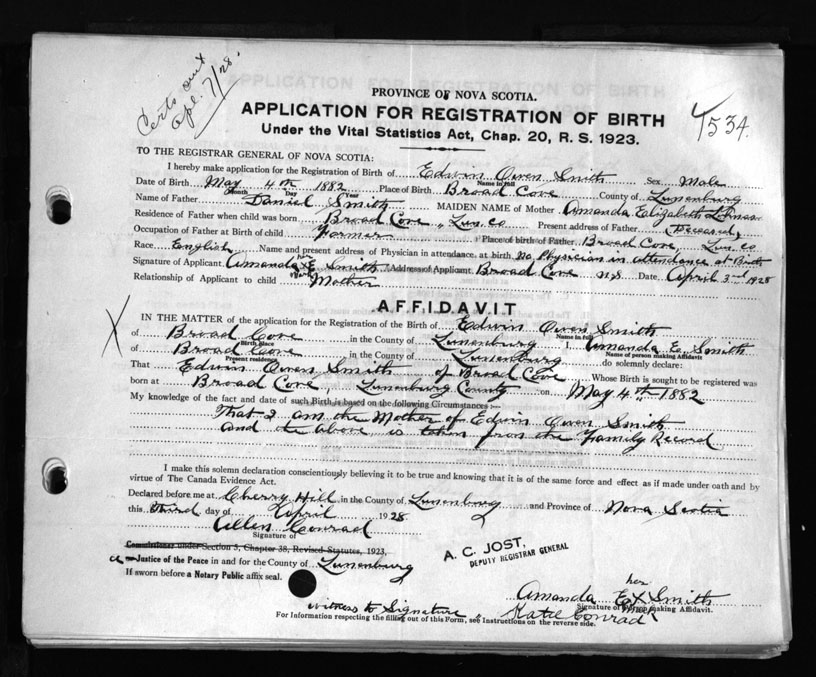 Certs out
Apl. 7/28.
PROVINCE OF NOVA SCOTIA.
APPLICATION FOR REGISTRATION OF BIRTH
534.
Under the Vital Statistics Act, Chap. 20, R. S. 1923.
TO THE REGISTRAR GENERAL OF NOVA SCOTIA:
I hereby make application for the Registration of Birth of Edwin Owen Smith Sex Male
Name in full
Date of Birth May 4th 1882 Place of Birth Broad Cove County of Lunenburg
Month Day Year
Name of Father Daniel Smith MAIDEN NAME of Mother Amanda Elizabeth
Residence of Father when child was born Broad Cove Lun. Co Present address of Father (Deceased)
Occupation of Father at Birth of child Farmer Place of birth of Father Broad Cove, Lun. Co
Race English Name and present address of Physician in attendance, at birth No Physician in attendance at Birth
Signature of Applicant Amanda her X mark E Smith Address of Applicant Broad Cove N.S Date April 3rd 1928
Relationship of Applicant to child Mother
AFFIDAVIT
X IN THE MATTER of the application for the Registration of the Birth of Edwin Owen Smith
Name in full
of Broad Cove in the County of Lunenburg I, Amanda E. Smith
Birth Place Name of person making Affidavit
of Broad Cove in the County of Lunenburg do solemnly declare:
Present residence
That Edwin Owen Smith of Broad Cove Whose Birth is sought to be registered was
born at Broad Cove, Lunenburg County on May 4th 1882
My knowledge of the fact and date of such Birth is based on the following Circumstances :—
That I am the Mother of Edwin Owen Smith
and the above is taken from the Family Record
I make this solemn declaration conscientiously believing it to be true and knowing that it is of the same force and effect as if made under oath and by
virtue of The Canada Evidence Act.
Declared before me at Cherry Hill in the County of Lunenburg and Province of Nova Scotia
this Third day of April 1928
Allen Conrad
Signature of
Commissioner under Section 3, Chapter 38, Revised Statutes, 1923,
A. C. JOST,
DEPUTY REGISTRAR GENERAL
a Justice of the Peace in and for the County of Lunenburg
If sworn before a Notary Public affix seal.
Amanda E her X mark Smith
Signature of Person making Affidavit.
witness to Signature Katie Conrad
For Information respecting the filling out of this Form, see Instructions on the reverse side.